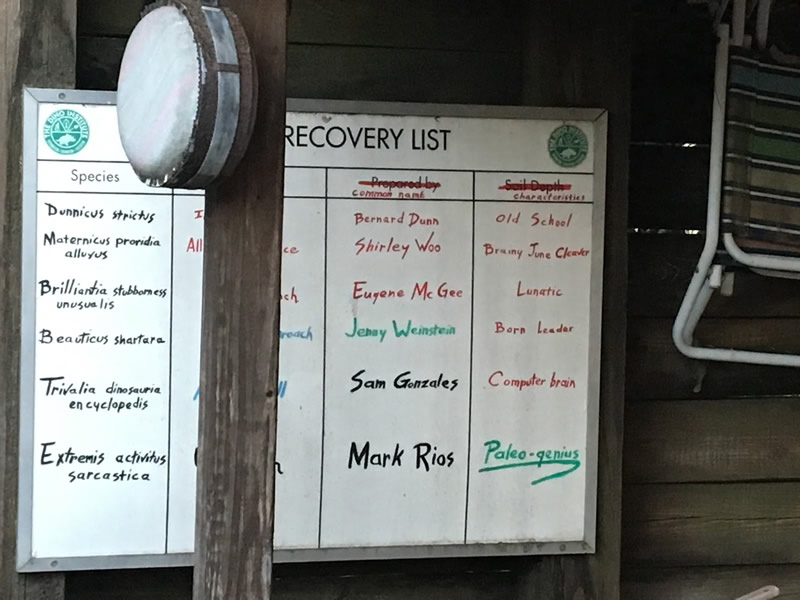 RECOVERY LIST
THE DINO INSTITUTE
THE DINO INSTITUTE
Species
Prepared by
common name
Soil Depth
characteristics
Dunnicus strictus
Bernard Dunn
Old School
Maternicus proridia
alluvus
All
ce
Shirley Woo
Brainy June Cleaver
Brilliantia stubborness
unusualis
ch
Eugene McGee
Lunatic
Beauticus shartara
roach
Jenny Weinstein
Born Leader
Trivalia dinosauria
encyclopedis
ll
Sam Gonzales
Computer brain
Extremis activitus
sarcastica
n
Mark Rios
Paleo-genius